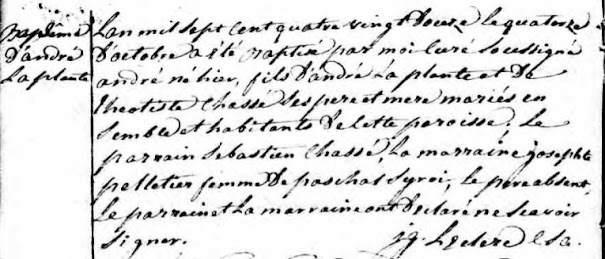 Baptême
d'andré
Laplante
L'an mil sept cent quatre vingt douze le quatorze
d'octobre a été baptisé par moi Curé soussigné
andré né hier, fils d'andré La plante et de
theotiste Chassé ses pere et mere mariés en
semble et habitants de Cette paroisse, Le
parrain Sebastien Chassé, La marraine josephte
pelletier femme de paschal Syroi, le pere absent,
le parrain et La marraine ont declaré ne Scavoir
signer. j.g. Leclerc